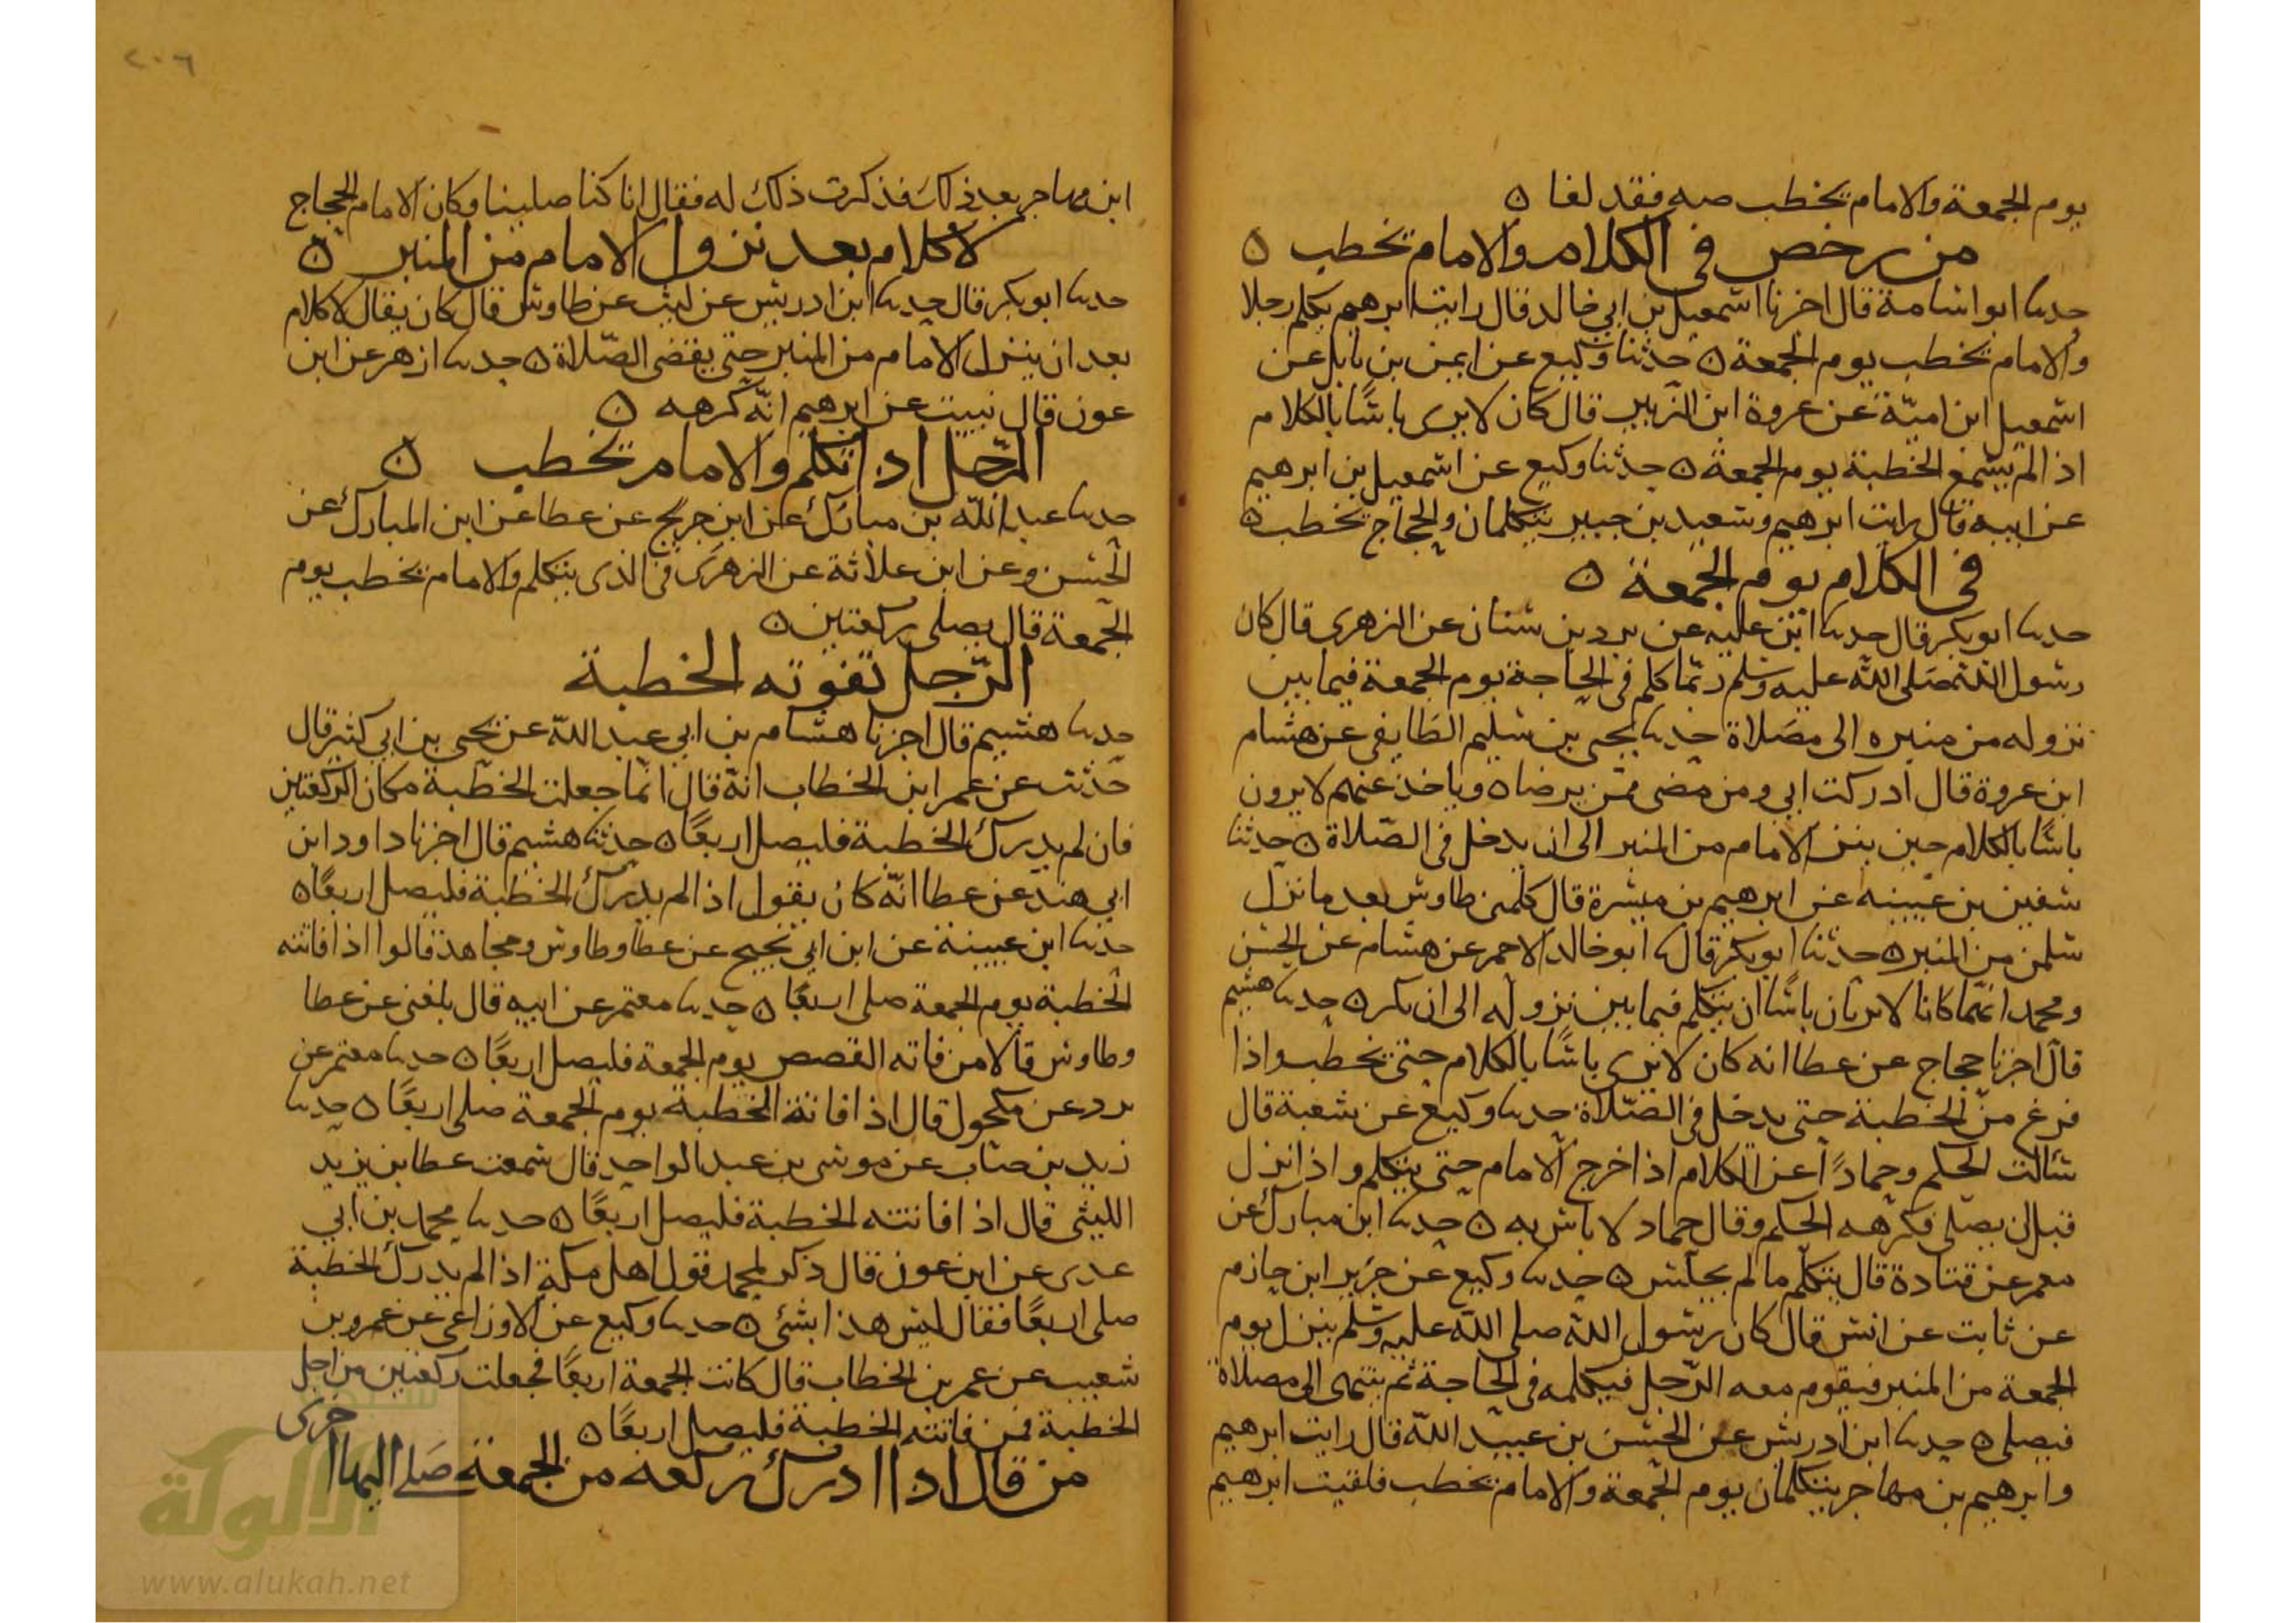 يوم الجمعة والامام يخطب صه فقد لغا ه
من رخص في الكلام والامام يخطب ه
حدثنا ابو اسامة قال اخبرنا اسمعيل بن ابي خالد قال رايت ابرهيم يكلم رجلا
والامام يخطب يوم الجمعة ه حدثنا وكيع عن ايمن بن نابل عن
اسمعيل ابن امية عن عروة ابن الزبير قال كان لا يرى باسًا بالكلام
اذا لم يسمع الخطبة يوم الجمعة ه حدثنا وكيع عن اسمعيل بن ابرهيم
عن ابيه قال رايت ابرهيم وسعيد بن جبير يتكلمان والحجاج يخطب ه
في الكلام يوم الجمعة ه
حدثنا ابو بكر قال حدثنا ابن علية عن برد بن سنان عن الزهري قال كان
رسول الله صلى الله عليه وسلم ربما كلم في الحاجة يوم الجمعة فيما بين
نزوله من منبره الى مصلاة حدثنا يحيى بن سليم الطايفي عن هشام
ابن عروة قال ادركت ابي ومن مضى ممن يرضا ه وياخذ عنهم لا يرون
باسًا بالكلام حين ينزل الامام من المنبر الى ان يدخل في الصلاة ه حدثنا
سفين بن عيينه عن ابرهيم بن ميسرة قال كلمني طاوس بعد ما نزل
سلمن من المنبر ه حدثنا ابو بكر قال ثنا ابو خالد الاحمر عن هشام عن الحسن
ومحمد انهما كانا لا يريان باسًا ان يتكلم فيما بين نزوله الى ان يكبر ه حدثنا هشيم
قال اخبرنا حجاج عن عطا انه كان لا يرى باسًا بالكلام حتى يخطب واذا
فرغ من الخطبة حتى يدخل في الصلاة حدثنا وكيع عن شعبة قال
سالت الحكم وحمادًا عن الكلام اذا خرج الامام حتى يتكلم واذا نزل
قبل ان يصلى فكرهه الحكم وقال حماد لا باس به ه حدثنا ابن مبارك عن
معمر عن قتادة قال يتكلم ما لم يجلس ه حدثنا وكيع عن جرير ابن حازم
عن ثابت عن انس قال كان رسول الله صلى الله عليه وسلم ينزل يوم
الجمعة من المنبر فيقوم معه الرجل فيكلمه في الحاجة ثم ينتهى الى مصلاة
فيصلى ه حدثنا ابن ادريس عن الحسن بن عبيد الله قال رايت ابرهيم
وابرهيم بن مهاجر يتكلمان يوم الجمعة والامام يخطب فلقيت ابرهيم
٢٠٦
ابن مهاجر بعد ذلك فذكرت ذلك له فقال انا كنا صلينا وكان الامام الحجاج
لا كلام بعد نزول الامام من المنبر ه
حدثنا ابو بكر قال حدثنا ابن ادريس عن ليث عن طاوس قال كان يقال لا كلام
بعد ان ينزل الامام من المنبر حتى يقضى الصلاة ه حدثنا ازهر عن ابن
عون قال نبيت عن ابرهيم انه كرهه ه
الرجل اذا تكلم والامام يخطب ه
حدثنا عبد الله بن مبارك عن ابن جريج عن عطا عن ابن المبارك عن
الحسن وعن ابن علاثة عن الزهرى في الذى يتكلم والامام يخطب يوم
الجمعة قال يصلى ركعتين ه
الرجل تفوته الخطبة
حدثنا هشيم قال اخبرنا هشام بن ابي عبد الله عن يحيى بن ابي كثير قال
حدثت عن عمر ابن الخطاب انه قال انما جعلت الخطبة مكان الركعتين
فان لم يدرك الخطبة فليصل اربعًا ه حدثنا هشيم قال اخبرنا داود ابن
ابي هند عن عطا انه كان يقول اذا لم يدرك الخطبة فليصل اربعًا ه
حدثنا ابن عيينة عن ابن ابي نجيح عن عطا وطاوس ومجاهد قالوا اذا فاتته
الخطبة يوم الجمعة صلى اربعًا ه حدثنا معتمر عن ابيه قال بلغني عن عطا
وطاوس قالا من فاته القصص يوم الجمعة فليصل اربعًا ه حدثنا معتمر عن
برد عن مكحول قال اذا فاتته الخطبة يوم الجمعة صلى اربعًا ه حدثنا
زيد بن حباب عن موسى بن عبد الواحد قال سمعت عطا بن يزيد
الليثى قال اذا فاتته الخطبة فليصل اربعًا ه حدثنا محمد بن ابي
عدى عن ابن عون قال ذكر لمحمد قول اهل مكة اذا لم يدرك الخطبة
صلى اربعًا فقال ليس هذا بشئ ه حدثنا وكيع عن الاوزاعى عن عمرو بن
شعيب عن عمر بن الخطاب قال كانت الجمعة اربعًا فجعلت ركعتين من اجل
الخطبة فمن فاتته الخطبة فليصل اربعًا ه
من قال اذا ادرك ركعه من الجمعة صلى اليها اخرى
الألوكة
www.alukah.net